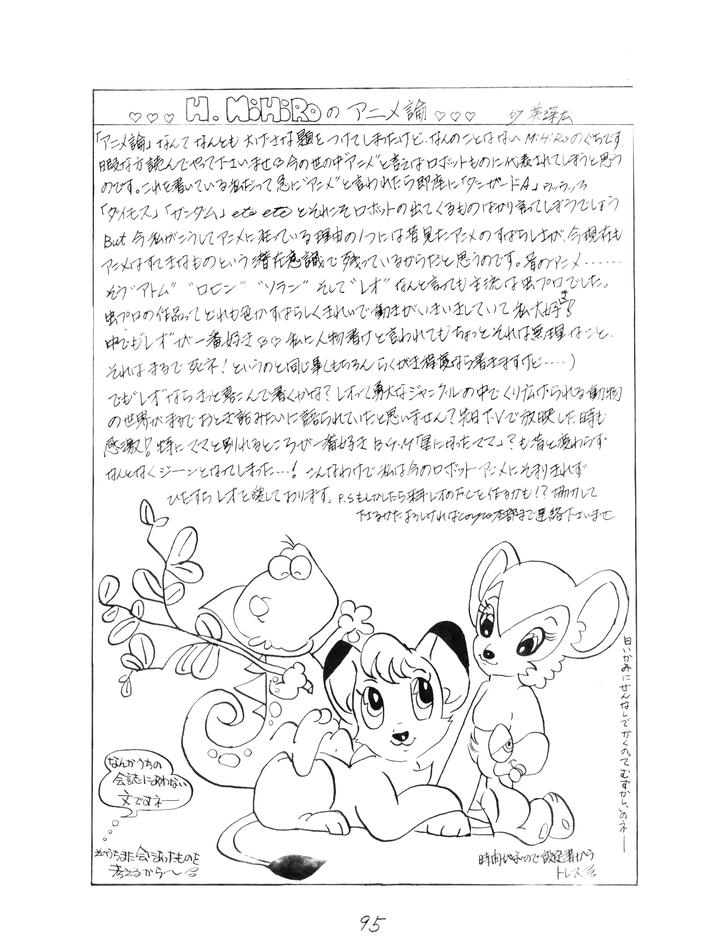 ♡♡♡ H.MiHiRoの アニメ論 ♡♡♡ by
「アニメ論」なんて なんとも 大げさな題をつけてしまったけど、なんのことはない MiHiRoのぐちです
暇な方読んでやって下さいませ♡ 今の世の中"アニメ"と言えばロボットものに代表されてしまうと思う
のです。これを書いている私だって急に"アニメ"と言われたら即座に「ダンガードA」
「ダイモス」「ガンダム」etc etcとそれこそロボットの出てくるものばかり言ってしまうでしょう
But 今 私がこうしてアニメに狂っている理由の1つには昔見たアニメのすばらしさが、今現在も
アニメはすてきなものという潜在意識で残っているからだと思うのです。昔のアニメ………
そう"アトム" "ロビン" "ソラン" そして"レオ" なんと言っても主流は虫プロでした。
虫プロの作品ってどれも色がすばらしくきれいで動きがいきいきしていて私大好き!
中でも"レオ"が一番好き♡♡ 私に人物書けと言われてもちょっとそれは無理なこと、
それはまるで死ネ!というのと同じ事(もちろん らくがき程度なら書きますけど……)
でも"レオ"ならきっと喜こんで書くかな? レオって勇大なジャングルの中でくり広げられる動物
の世界がまるでおとぎ話みたいに語られていたと思いません? 先日TVで放映した時も
感激! 特にママと別れるところが一番好き B.G.M「星になったママ」? も昔と変わらず
なんとなくジーンとなってしまった…! こんなわけで私は今のロボットアニメにそまりきれず
ひたすらレオを愛しております。P.S もしかしたら来年レオのF.Cを作るかも!? 協力して
下さるかたよろしければ 本部まで連絡下さいませ
白いかみにせんなしでかくのってむずかしいのネー
なんかうちの
会誌にあわない
文ですネー
そのうちまた会にあったものを
考えるから〜
時間がないので設定書から
トレス
95